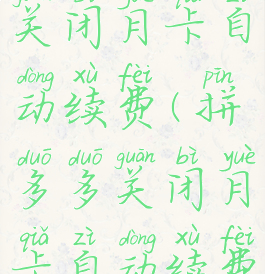 关闭月卡自
dòng xù fèi pīn
动续费(拼
duō duō guān bì yuè
多多关闭月
qiǎ zì dòng xù fèi
卡自动续费